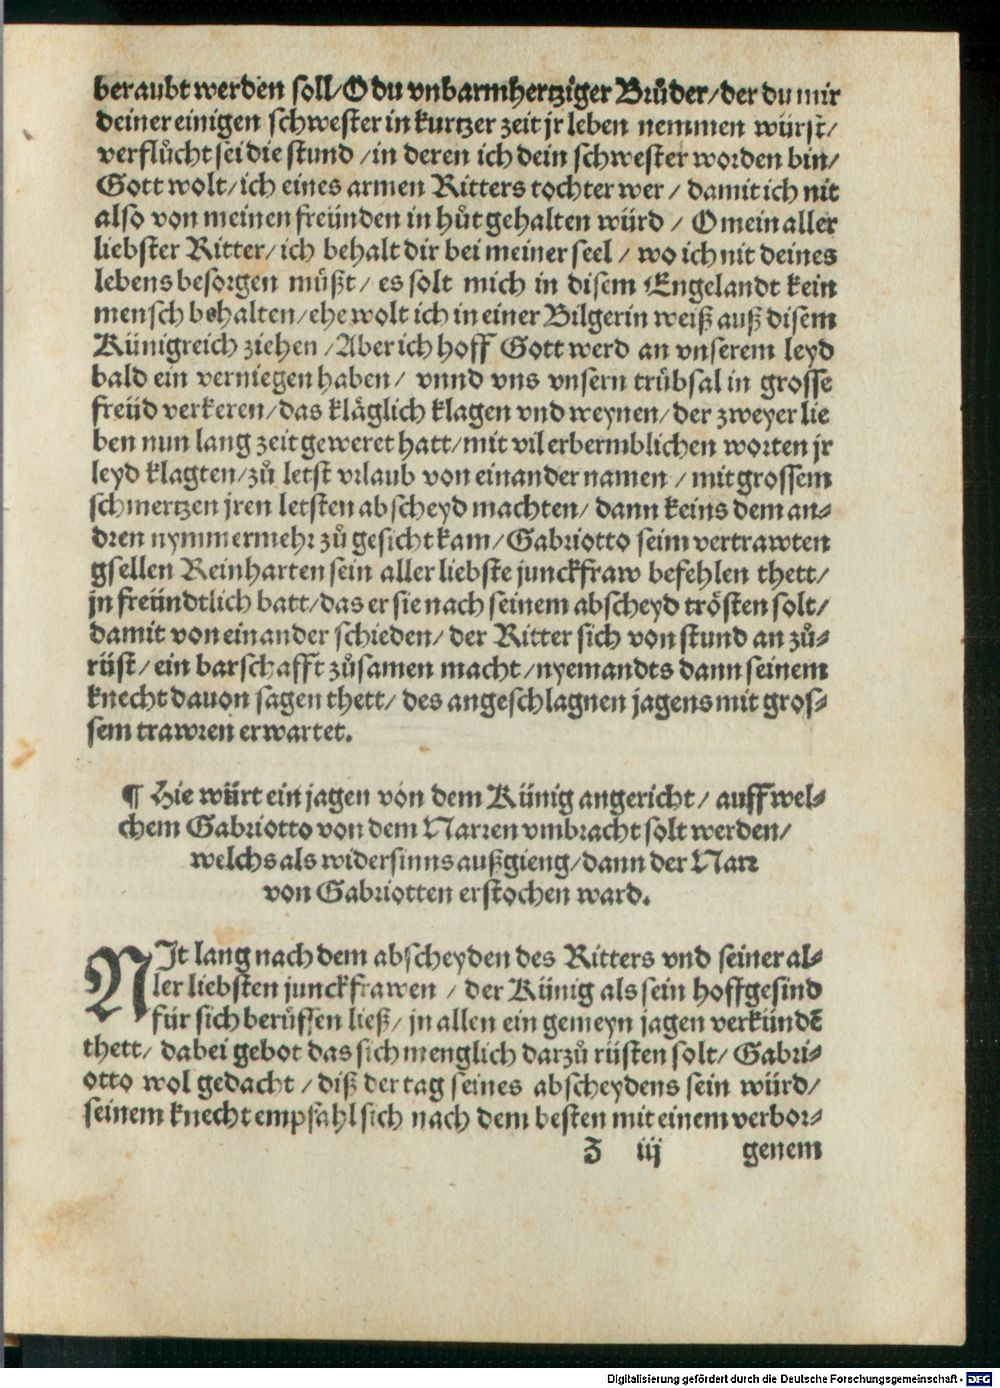 beraubt werden soll/O du vnbarmhertziger Brůder/der du mir
deiner einigen schwester in kurtzer zeit jr leben nemmen würst/
verflůcht sei die stund /in deren ich dein schwester worden bin/
Gott wolt/ich eines armen Ritters tochter wer / damit ich nit
also von meinen freünden in hůt gehalten würd / O mein aller
liebster Ritter/ich behalt dir bei meiner seel / wo ich nit deines
lebens besorgen müßt/ es solt mich in disem Engelandt kein
mensch behalten/ehe wolt ich in einer Bilgerin weiß auß disem
Künigreich ziehen /Aber ich hoff Gott werd an vnserem leyd
bald ein verniegen haben/ vnnd vns vnsern trübsal in grosse
freüd verkeren/das kläglich klagen vnd weynen/der zweyer lie
ben nun lang zeit geweret hatt/mit vil erbermblichen worten jr
leyd klagten/zů letst vrlaub von einander namen / mit grossem
schmertzen jren letsten abscheyd machten/ dann keins dem an-
dren nymmermehr zů gesicht kam/Gabriotto seim vertrawten
gsellen Reinharten sein aller liebste junckfraw befehlen thett/
jn freündtlich batt/das er sie nach seinem abscheyd trösten solt/
damit von einander schieden/ der Ritter sich von stund an zů-
rüst/ein barschafft zůsamen macht/nyemandts dann seinem
knecht dauon sagen thett/ des angeschlagnen jagens mit gros-
sem trawren erwartet.
¶ Hie würt ein jagen von dem Künig angericht/ auff wel-
chem Gabriotto von dem Narren vmbracht solt werden/
welchs als widersinns außgieng/dann der Narr
von Gabriotten erstochen ward.
NIt lang nach dem abscheyden des Ritters vnd seiner al-
ler liebsten junckfrawen / der Künig als sein hoffgesind
für sich berůffen ließ/ jn allen ein gemeyn jagen verkündẽ
thett/ dabei gebot das sich menglich darzů rüsten solt/ Gabri-
otto wol gedacht /diß der tag seines abscheydens sein würd/
seinem knecht empfahl sich nach dem besten mit einem verbor-
Z iiij genem
Digitalisierung gefördert durch die Deutsche Forschungsgemeinschaft - DFG